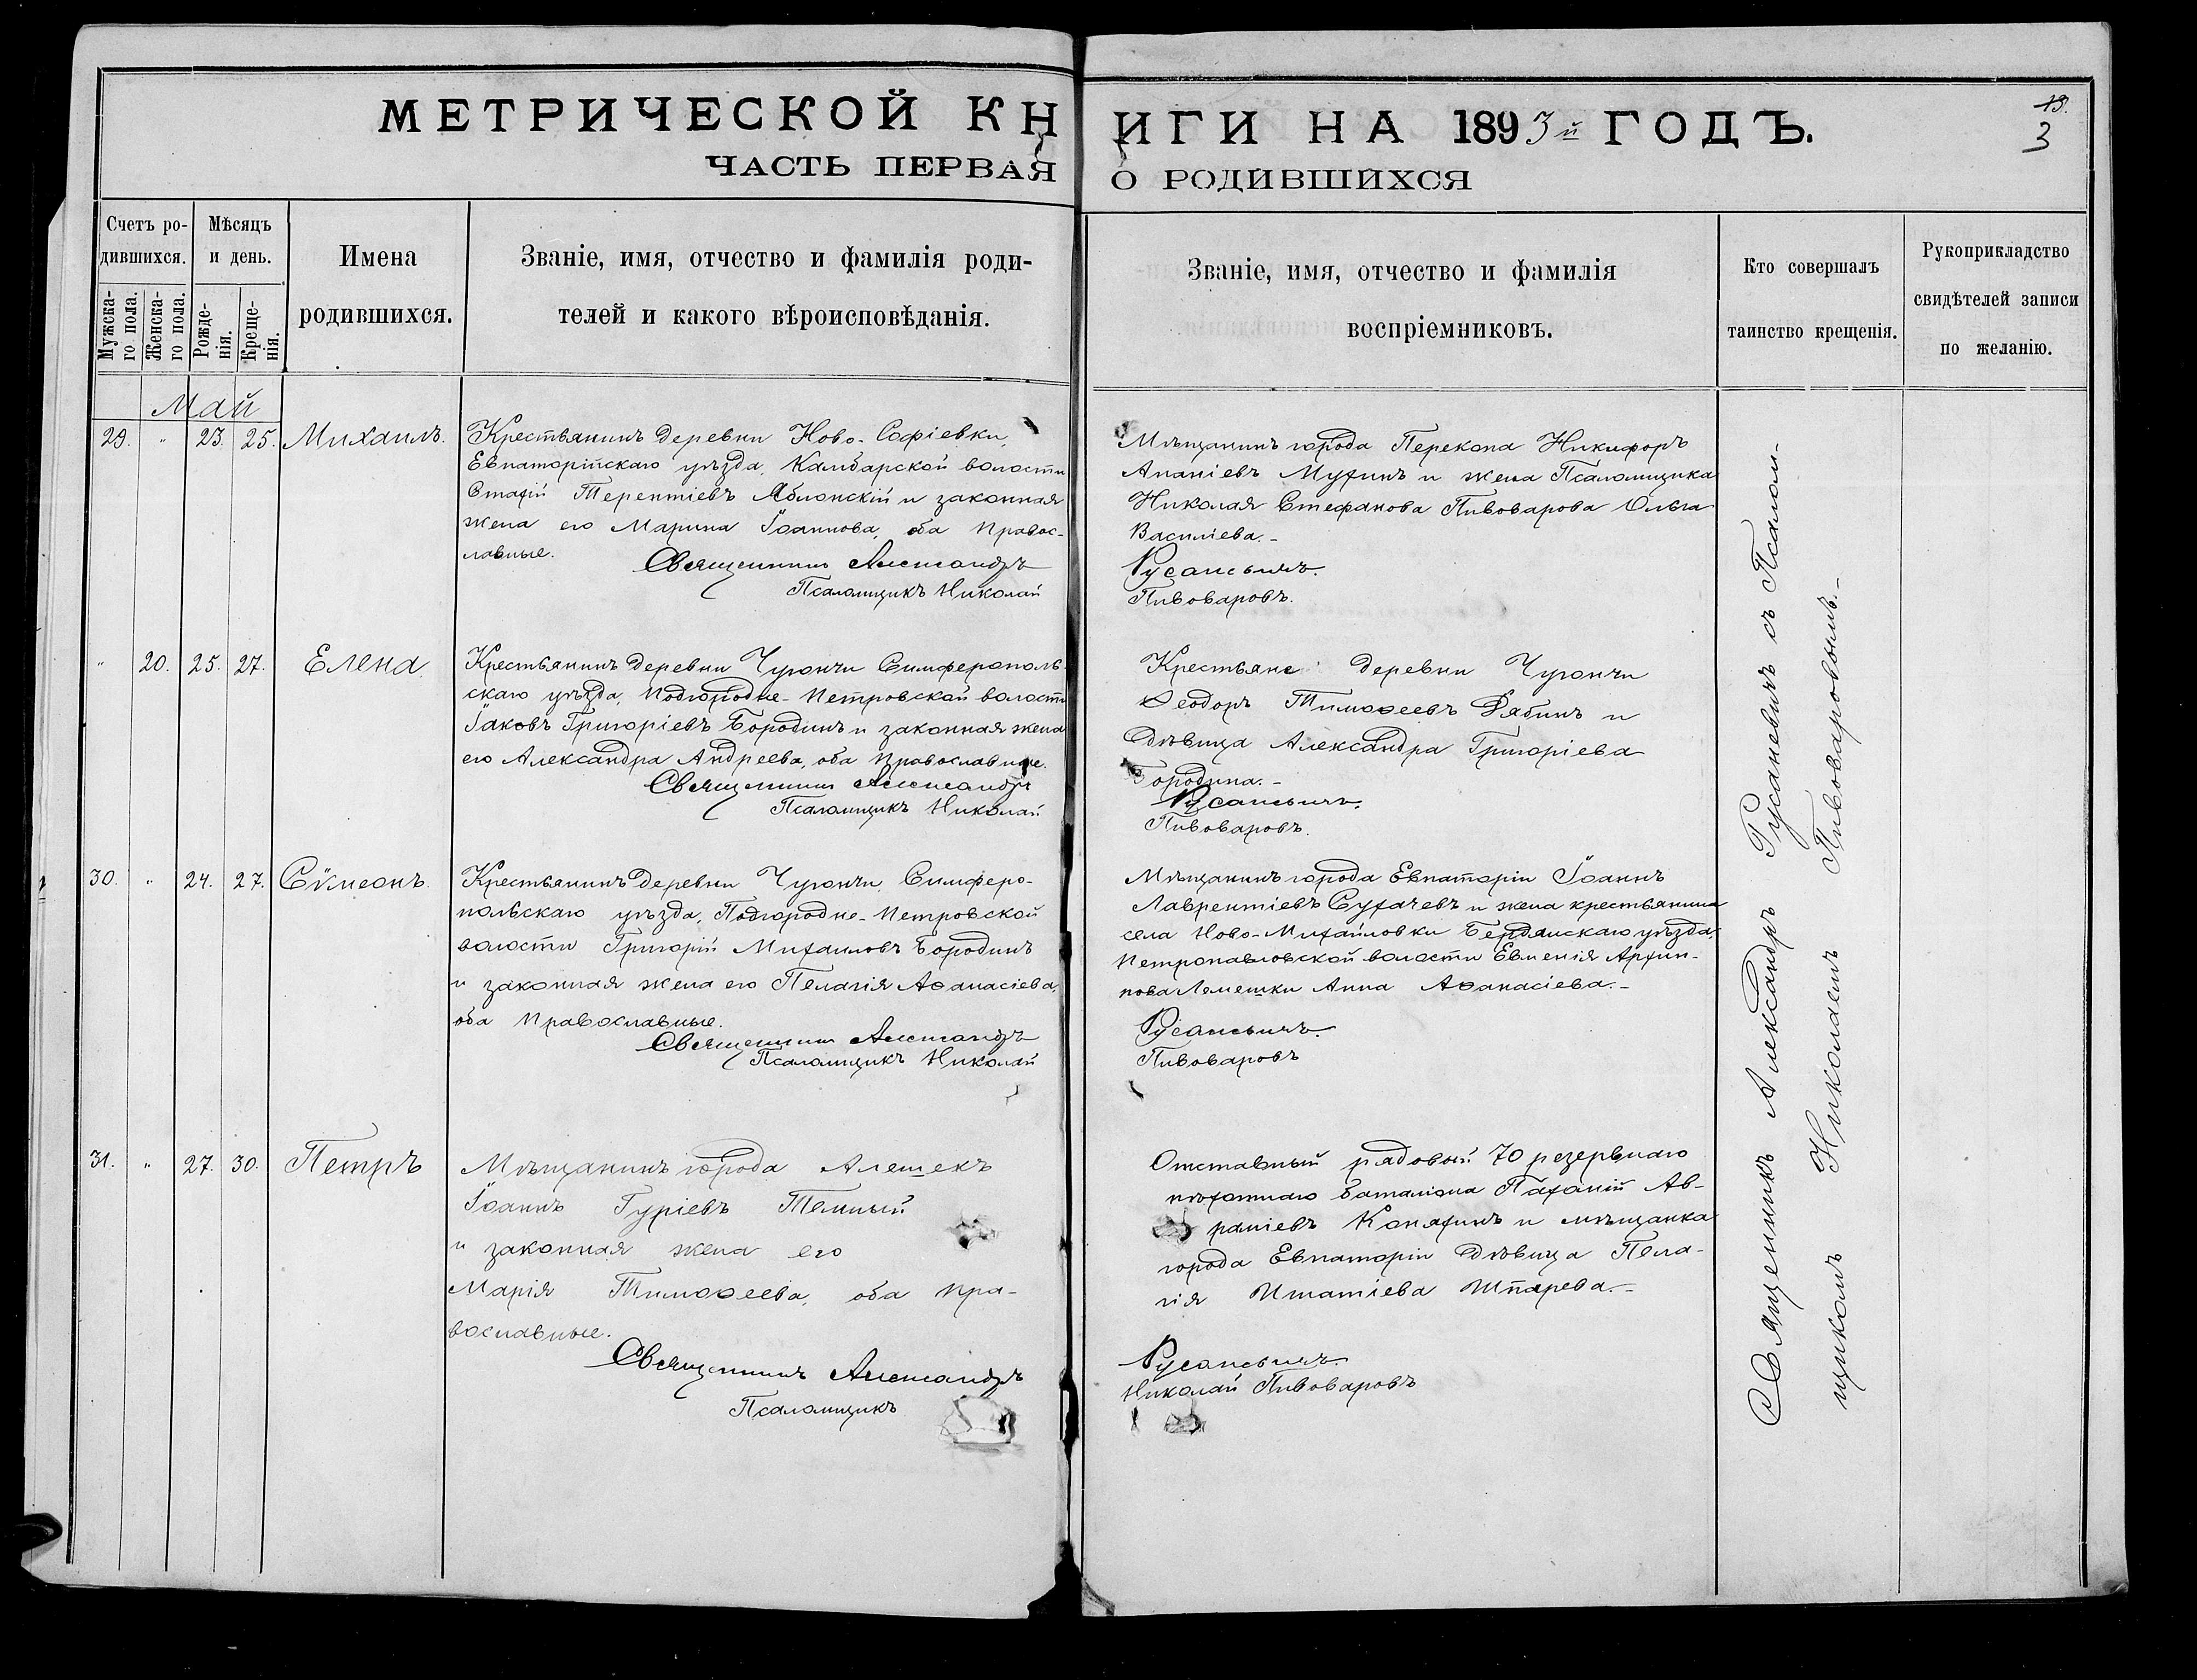 МЕТРИЧЕСКОЙ КНИГИ НА 1893й ГОДЪ.
13.
3
ЧАСТЬ ПЕРВАЯ О РОДИВШИХСЯ
Счетъ ро-
дившихся.
Мужска-
го пола.
Женска-
го пола.
Мѣсяцъ
и день.
Рожде-
нія.
Креще-
нія.
Имена
родившихся.
Званіе, имя, отчество и фамилія роди-
телей и какого вѣроисповѣданія.
Званіе, имя, отчество и фамилія
воспріемниковъ.
Кто совершалъ
таинство крещенія.
Рукоприкладство
свидѣтелей записи
по желанію.
Май
29. " 23. 25. Михаилъ.
Крестьянинъ деревни Ново-Софіевки,
Евпаторійскаго уѣзда, Камбарской волости
Стафій Терентіевъ Яблонскій и законная
жена его Марина Іоаннова, оба правос-
лавные.
Священникъ Александръ
Псаломщикъ Николай
Мѣщанинъ города Перекопа Никифоръ
Ананіевъ Мухинъ и жена Псаломщика
Николая Стефанова Пивоварова Ольга
Василіева.-
Русаневичъ.
Пивоваровъ.
" 20. 25. 27. Елена.
Крестьянинъ деревни Чурончи Симферополь-
скаго уѣзда, Подгородне-Петровской волости
Іаковъ Григоріевъ Бородинъ и законная жена
его Александра Андреева, оба православные.
Священникъ Александръ
Псаломщикъ Николай
Крестьяне деревни Чурончи
Ѳеодоръ Тимоѳеевъ Рябинъ и
дѣвица Александра Григоріева
Бородина.-
Русаневичъ.
Пивоваровъ.
30. " 24. 27. Сѵмеонъ.
Крестьянинъ деревни Чурончи, Симферо-
польскаго уѣзда, Подгородне-Петровской
волости Григорій Михаиловъ Бородинъ
и законная жена его Пелагія Аѳанасіева,
оба православные.
Священникъ Александръ
Псаломщикъ Николай
Мѣщанинъ города Евпаторіи Іоаннъ
Лаврентіевъ Сухачевъ и жена крестьянина
села Ново-Михайловки Бердянскаго уѣзда,
Петропавловской волости Евменія Архип-
пова Лемешки Анна Аѳанасіева.-
Русаневичъ.
Пивоваровъ
31. " 27. 30. Петръ
Мѣщанинъ города Алешекъ
Іоаннъ Гуріевъ Темный
и законная жена его
Марія Тимоѳеева, оба пра-
вославные.
Священникъ Александръ
Псаломщикъ
Отставный рядовый 70 резервнаго
пѣхотнаго баталіона Пафоній Ав-
раміевъ Коняхинъ и мѣщанка
города Евпаторіи дѣвица Пела-
гія Игнатіева Шпарева.-
Русаневичъ.
Николай Пивоваровъ
Священникъ Александръ Русаневичъ съ Псалом-
щикомъ Николаемъ Пивоваровымъ.-